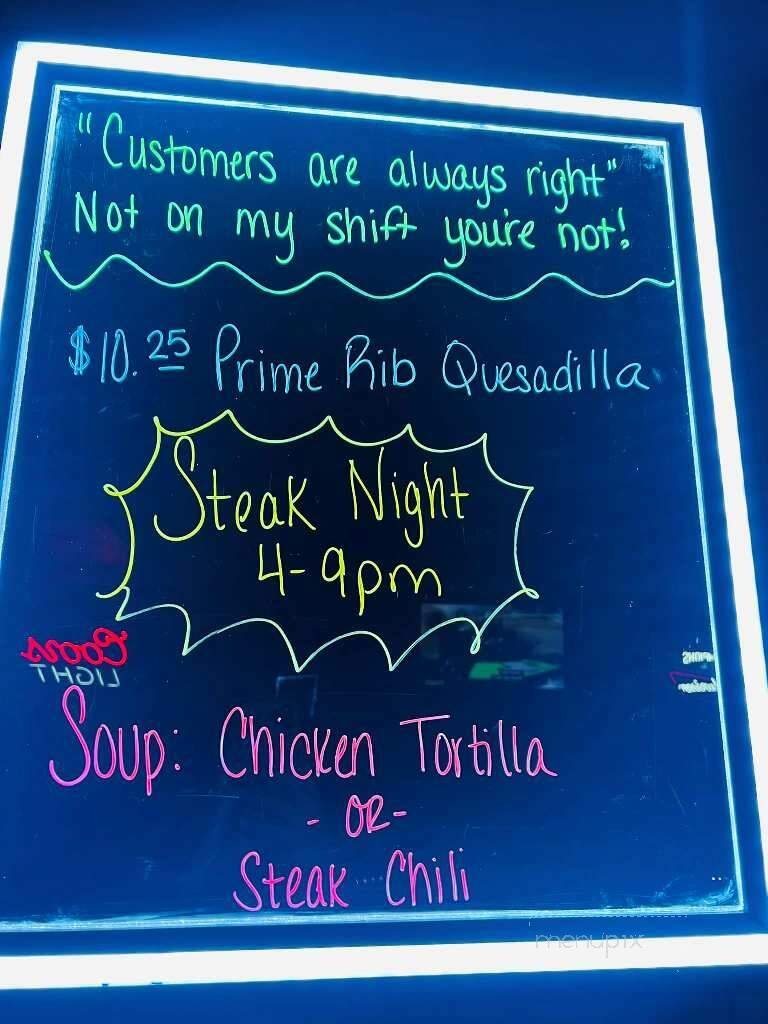 "Customers are always right"
Not on my shift you're not!
$10.25 Prime Rib Quesadilla
Steak Night
4-9pm
Coors
LIGHT
Soup: Chicken Tortilla
- OR -
Steak Chili
menupix